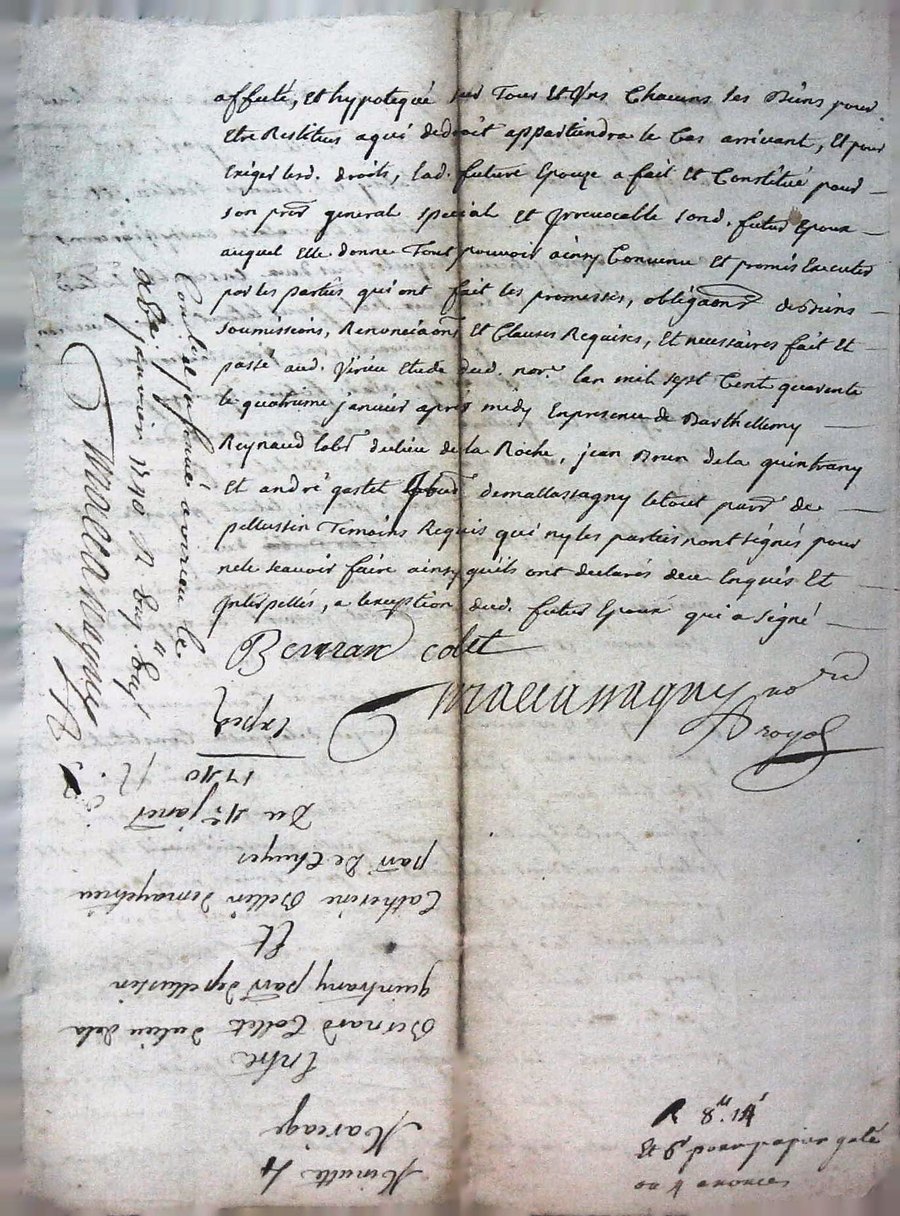 affecté, et hypotequé sur Tous et Uns Chacuns ses Biens pour
Etre Restitués a qui de droit appartiendra le Cas arrivant, Et pour
Exiger lesd. droits, lad. future Epouze a fait et Constitué pour
son pror general special et Irrevocable sond. futur Epoux
auquel elle donne Tout pouvoir ainsy Convenu et promis Executer
par les parties qui ont fait les promesses, obligaons de Biens
soumissions, Renonciaons et Clauses Requises, et necessaires fait et
passé aud. Virieu Etude dud. nore. lan mil sept Cent quarente
le quatrieme janvier après midy En presence de Barthellemy
Reynaud labr du lieu de la Roche, jean Brun de la quintrany
et andré gastel de mallassagny le tout parr de
pellussin Temoins Requis qui ny les parties nont signés pour
ne le scavoir faire ainsy qu'ils ont declarés de ce Enquis et
Interpellés, a lexception dud. futur Epoux qui a signé
Bernar colet
mallassagny nore
royal
Conlé a virieu le
janvier 1740 R
mallassagny
Expé
Minutte
Mariage
Entre
Bernard Collet du lieu de la
quintrany parr de pellussin
Et
Catherine Bellin
parr De Chuyer
Du 4e janer
1740
R 8 14
Et pour papier gaté
ou 4 anonces